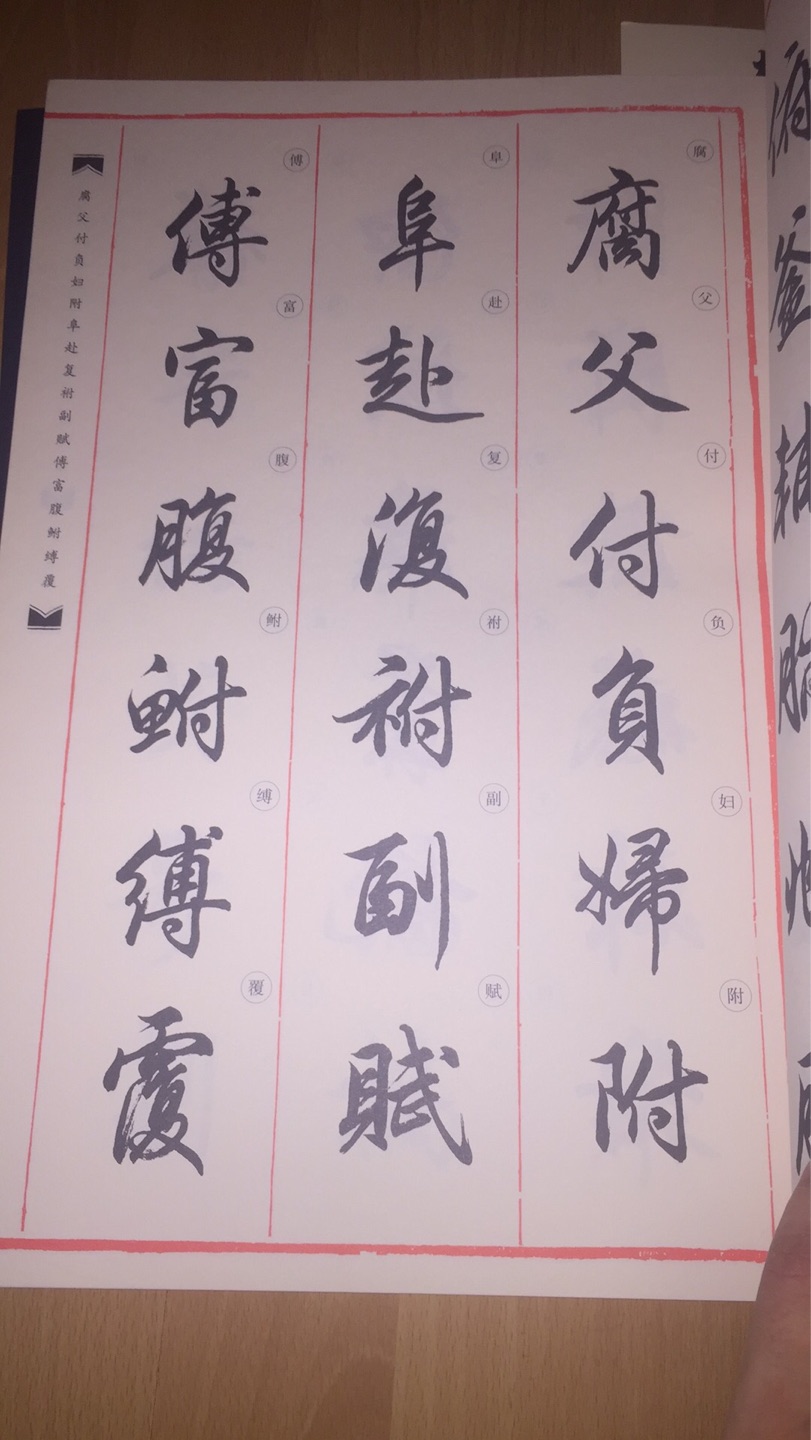 腐父付負婦附
阜赴復祔副賦
傅富腹鮒縛覆
腐
父
付
负
妇
附
阜
赴
复
祔
副
赋
傅
富
腹
鲋
缚
覆
腐父付负妇附阜赴复祔副赋傅富腹鲋缚覆